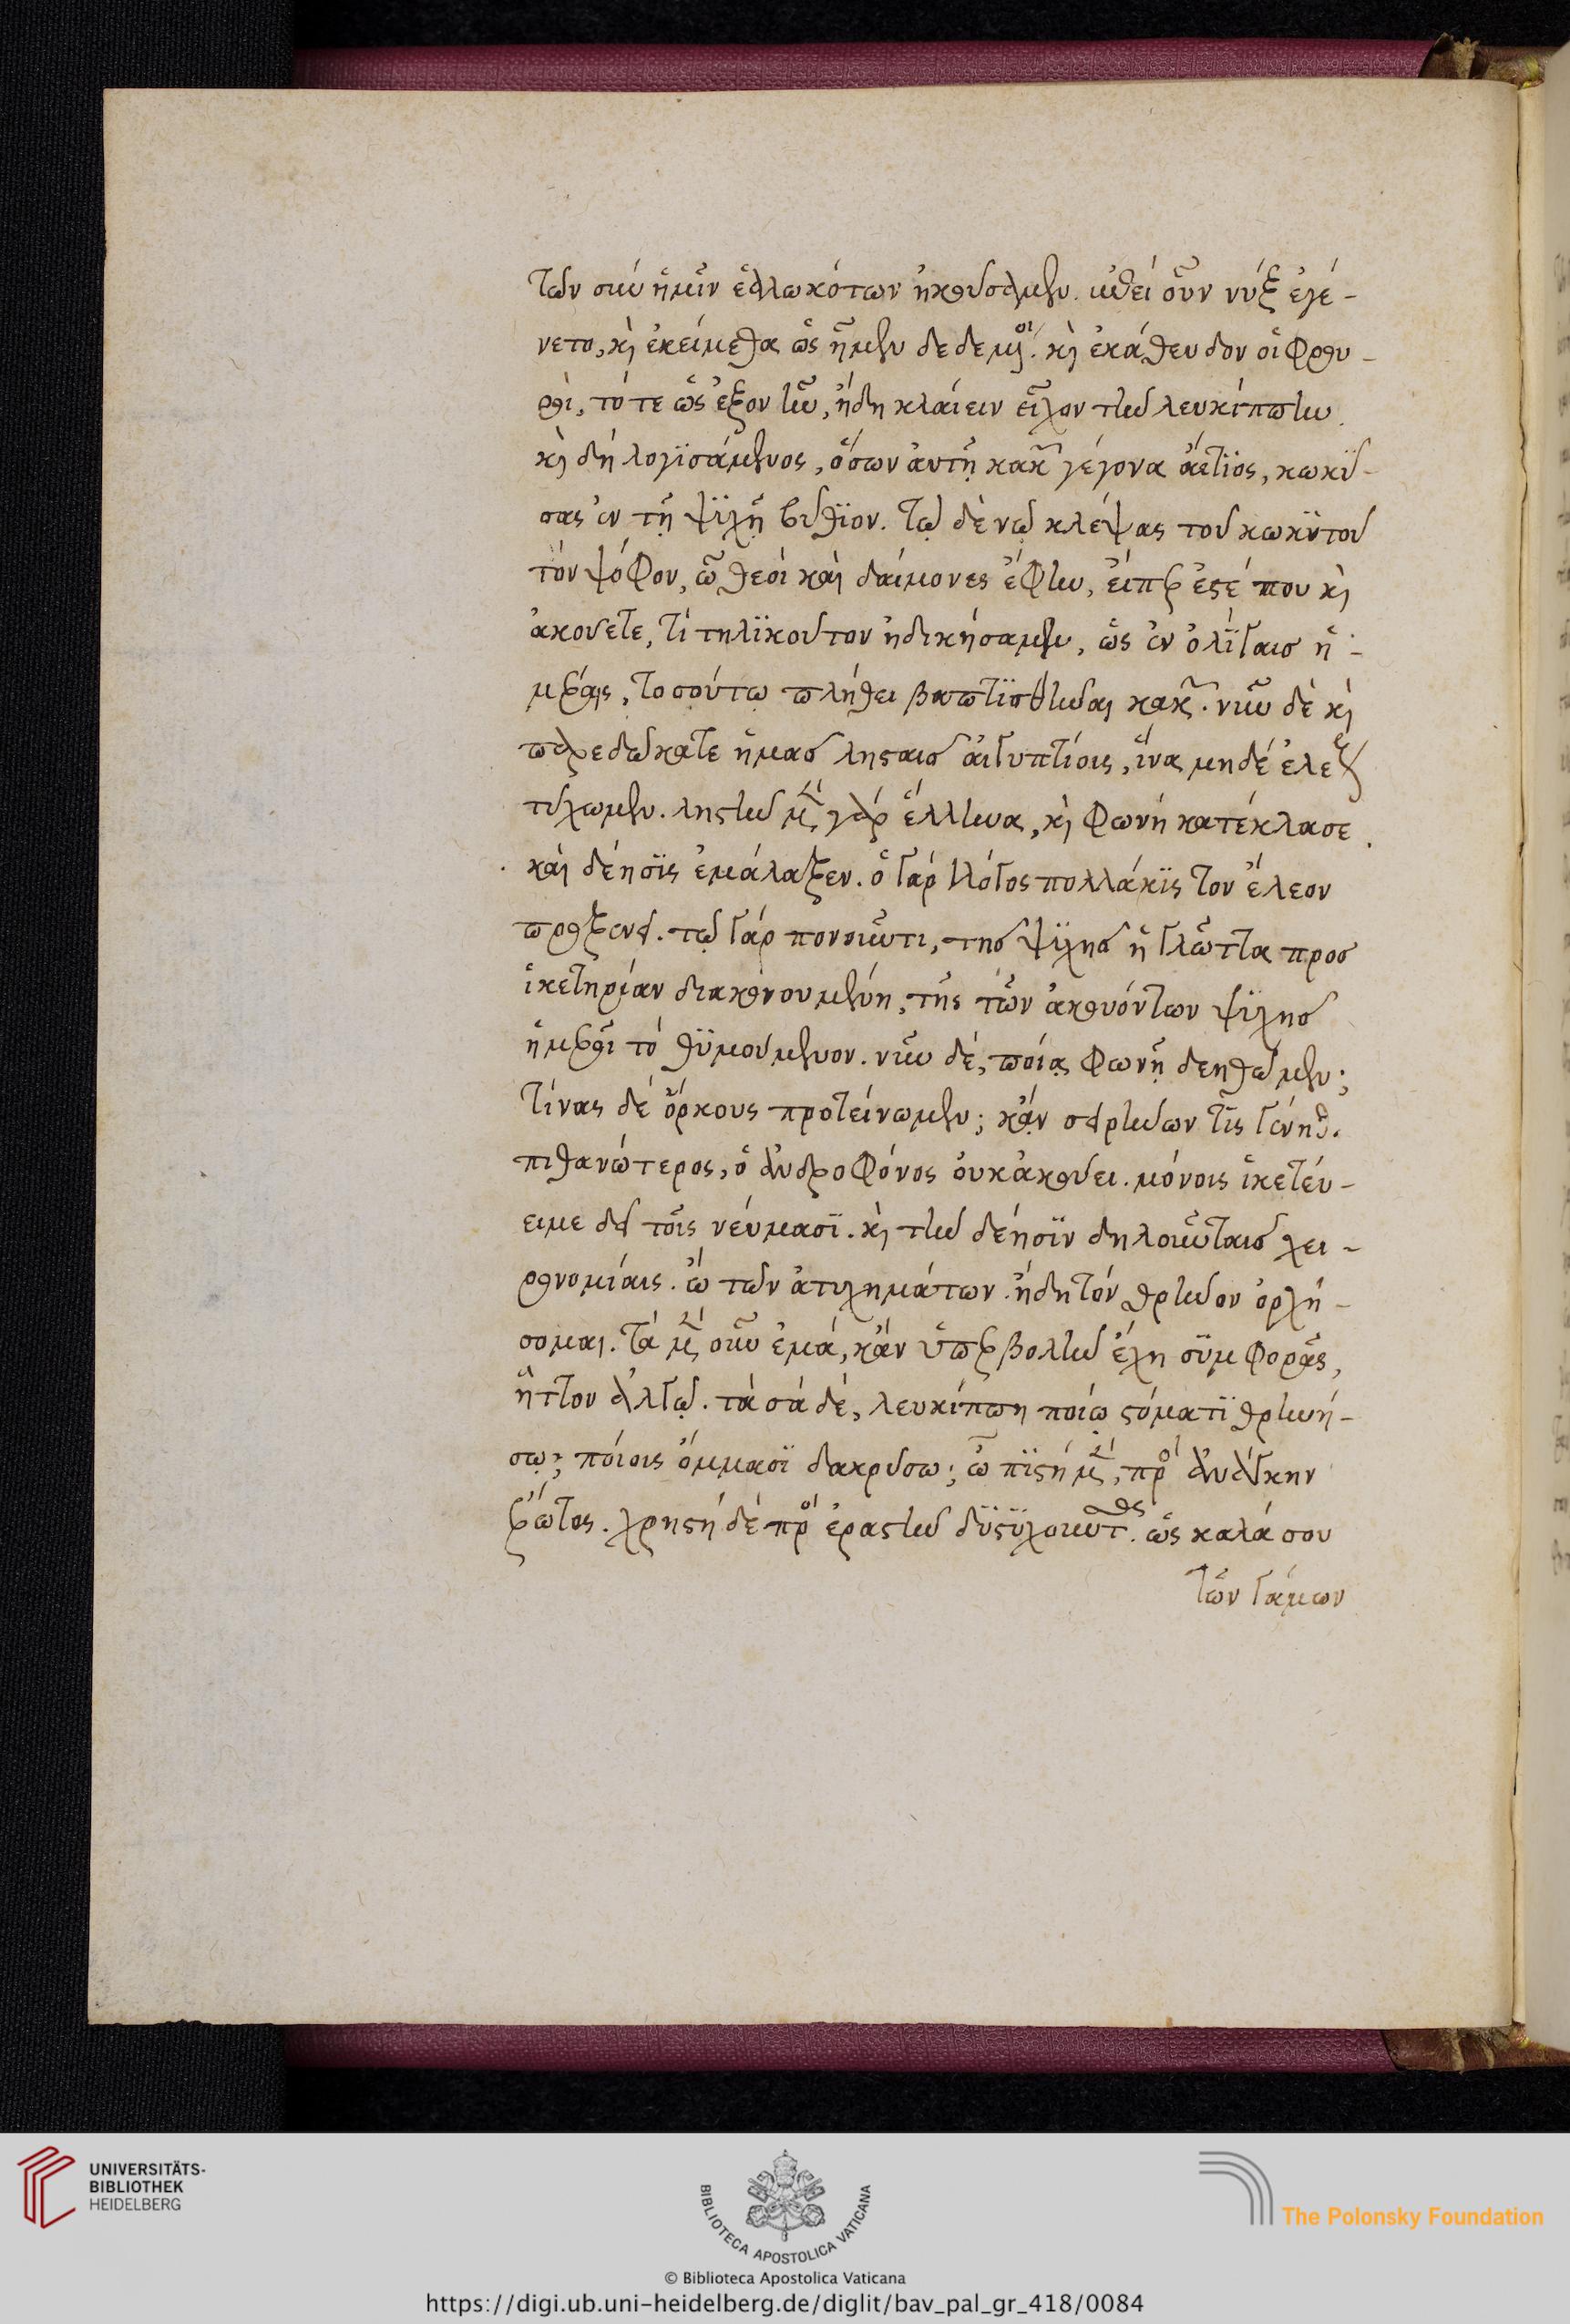 τῶν σὺν ἡμῖν ἑαλωκότων ἠκούσαμεν. ἐπεὶ οὖν νὺξ ἐγέ-
νετο, κὶ ἐκείμεθα ὡς ἦμεν δεδεμένοι. κὶ ἐκάθευδον οἱ φρου-
ροὶ, τότε ὡς ἐξὸν ἦν, ἤδη κλαίειν εἶχον τὴν λευκίππην.
κὶ δὴ λογϊσάμενος, ὅσων ἀυτῆ κακῶν γέγονα ἄιτϊος, κωκϋ-
σας ἐν τῆ ψϋχῆ βύθϊον. τῷ δὲ νῷ κλέψας τοῦ κωκϋτοῦ
τὸν ψόφον, ὦ θεόι καὶ δαίμονες ἔφην, ἔιπερ ἐστέ που κὶ
ἀκούετε, τί τηλϊκοῦτον ἠδικήσαμεν, ὡς ἐν ὀλίγαισ ἡ-
μέραις, τοσούτω πλήθει βαπτϊσθῆναι κακῶν. νῦν δὲ κὶ
παρεδώκατε ἡμασ λησταισ ἀιγυπτίοις, ἵνα μηδὲ ἐλέου
τύχωμεν. ληστὴν μὲν γὰρ ἕλληνα, κὶ φωνὴ κατέκλασε.
καὶ δέησϊς ἐμάλαξεν. ὁ γὰρ λόγος πολλάκϊς τὸν ἔλεον
προξενεῖ. τῷ γὰρ πονοῦντι, τησ ψϋχησ ἡ γλῶττα προσ
ἱκετηρίαν διακονουμένη, τῆς τῶν ἀκουόντων ψϋχησ
ἡμεροῖ τὸ θϋμούμενον. νῦν δὲ, ποίᾳ φωνῆ δεηθῶμεν;
τίνας δὲ ὅρκους προτείνωμεν; κἄν σειρήνων τὶς γένηται.
πιθανώτερος, ὁ ἀνδροφόνος ὀυκ ἀκούει. μόνοις ἱκετέυ-
ειμε δεῖ τοῖς νέυμασϊ. κὶ τὴν δέησϊν δηλοῦνταισ χει-
ρονομίαις. ὤ τῶν ἀτυχημάτων. ἤδη τὸν θρῆνον ὀρχή-
σομαι. τὰ μὲν οὖν ἐμὰ, κἂν ὑπερβολὴν ἔχη σϋμφορᾶς,
ἧττον ἀλγῶ. τὰ σὰ δὲ, λευκίππη ποίω στόματϊ θρηνή-
σω; πόιοις ὄμμασϊ δακρύσω; ὦ πϊστὴ μὲν, πρὸς ἀνάγκην
ἔρωτος. χρηστὴ δὲ πρὸς ἐραστὴν δϋστϋχοῦντα. ὡς καλά σου
τῶν γάμων
UNIVERSITÄTS-
BIBLIOTHEK
HEIDELBERG
BIBLIOTECA APOSTOLICA VATICANA
The Polonsky Foundation
© Biblioteca Apostolica Vaticana
https://digi.ub.uni-heidelberg.de/diglit/bav_pal_gr_418/0084